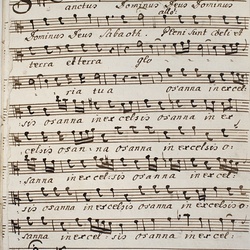 Sanctus Dominus Deus Dominus
allo:
Dominus Deus Sabaoth. Pleni sunt coeli et
terra et terra glo
ria tua osanna in excel:
sis osanna in excelsis osanna in ex
celsis osan:na osanna in excelsis o:
sanna in excel:sis osanna in excel:
sis osanna in excelsis osanna in excelsis o:
sanna in excel sis osanna in excelsis.